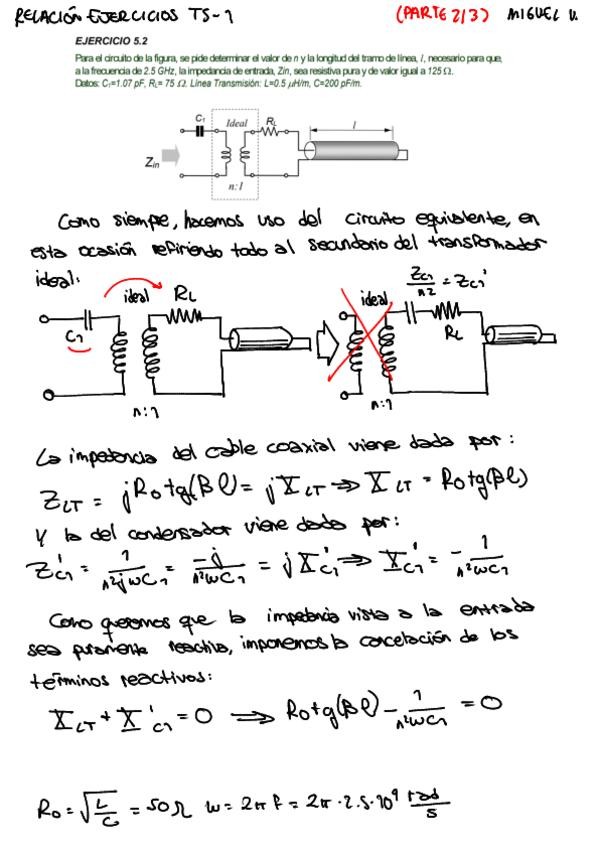 RELACIÓN EJERCICIOS TS-1 (PARTE 2/3) MIGUEL V.
EJERCICIO 5.2
Para el circuito de la figura, se pide determinar el valor de n y la longitud del tramo de línea, l, necesario para que,
a la frecuencia de 2.5 GHz, la impedancia de entrada, Zin, sea resistiva pura y de valor igual a 125 Ω.
Datos: C₁=1.07 pF, R_L= 75 Ω. Línea Transmisión: L=0.5 μH/m, C=200 pF/m.
C₁ Ideal R_L l
Z_in
n:1
Como siempre, hacemos uso del circuito equivalente, en
esta ocasión refiriendo todo al secundario del transformador
ideal:
ideal R_L ideal Z_C1/n2 = Z_C1'
C1 R_L
n:1 n:1
La impedancia del cable coaxial viene dada por:
Z_LT = jRo tg(βl) = jX_LT ⇒ X_LT = Ro tg(βl)
Y la del condensador viene dada por:
Z'_C1 = 1/(n²jωC1) = -j/(n²ωC1) = jX'_C1 ⇒ X'_C1 = -1/(n²ωC1)
Como queremos que la impedancia vista a la entrada
sea puramente reactiva, imponemos la cancelación de los
términos reactivos:
X_LT + X'_C1 = 0 ⇒ Ro tg(βl) - 1/(n²ωC1) = 0
Ro = √(L/C) = 50 Ω ω = 2π f = 2π · 2.5 · 10⁹ rad/s